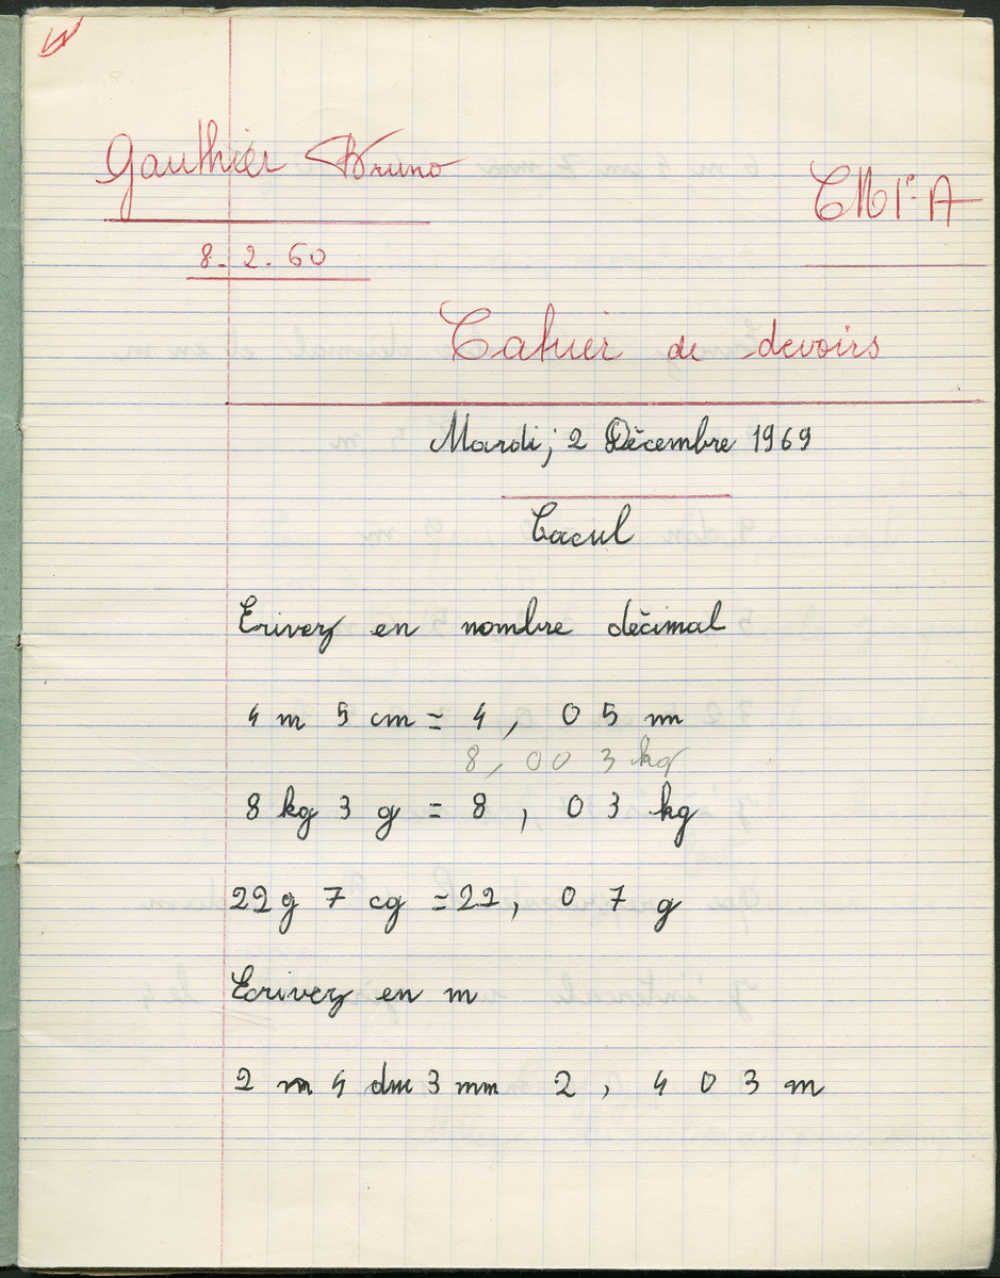 Gauthier Bruno
CM1e A
8. 2. 60
Cahier de devoirs
Mardi; 2 Décembre 1969
Cacul
Erivez en nombre décimal
4 m 5 cm = 4, 05 m
8, 00 3 kg
8 kg 3 g = 8, 03 kg
22g 7 cg = 22, 07 g
Ecrivez en m
2 m 4 dm 3 mm 2, 4 0 3 m